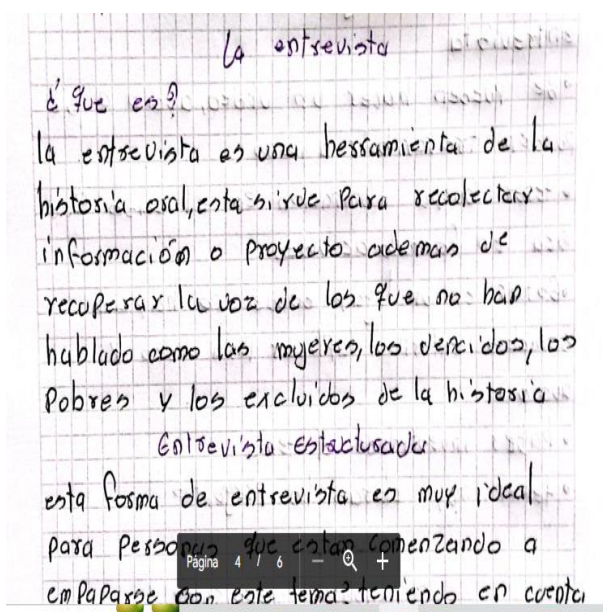 La entrevista
¿Que es?
la entrevista es una herramienta de la
historia oral, esta sirve para recolectar
información o proyecto ademas de
recuperar la voz de los que no han
hablado como las mujeres, los vencidos, los
pobres y los excluidos de la historia
Entrevista estructurada
esta forma de entrevista es muy ideal
para personas que estan comenzando a
Página 4 / 6 — +
empaparse con este tema teniendo en cuenta